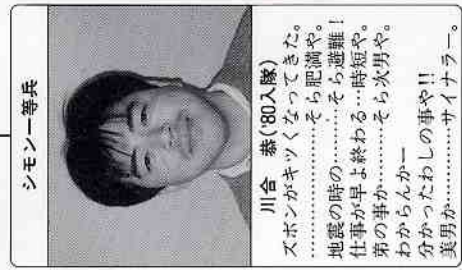 シモン一等兵
川合　恭('80入隊)
ズボンがキツくなってきた。
……………………そら肥満や。
地震の時の………そら避難!
仕事が早よ終わる…時短や。
弟の事か………そら次男や。
わからんかー
分かったわしの事や!!
美男か…………サイナラー。